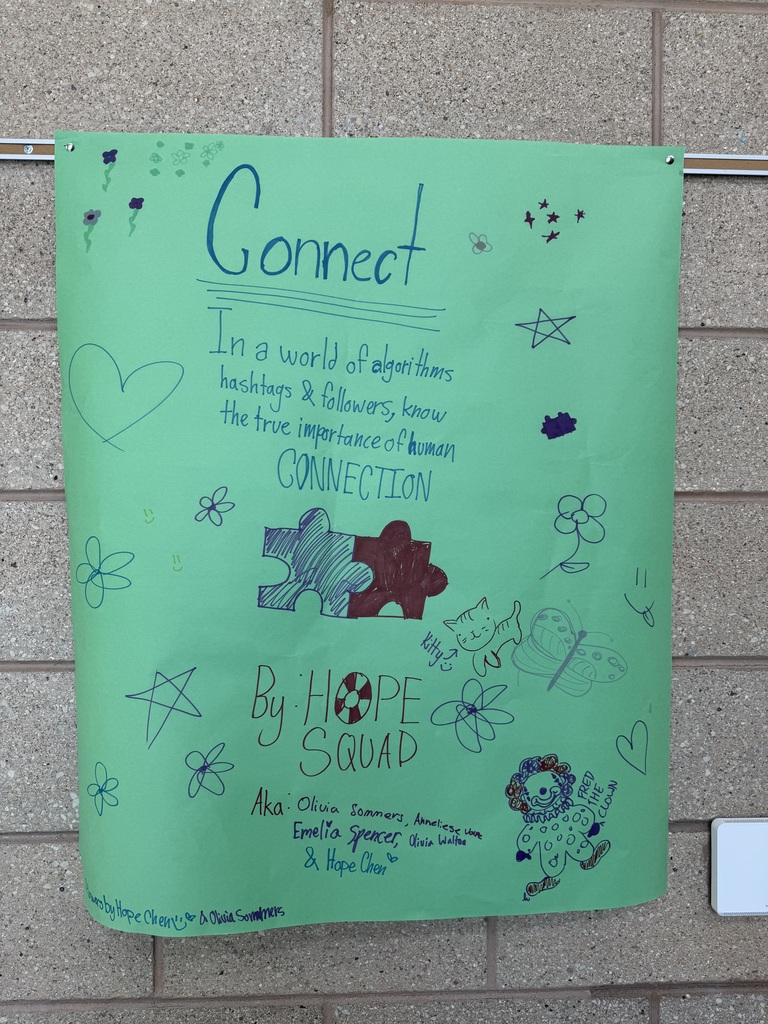 Connect
In a world of algorithms
hashtags & followers, know
the true importance of human
CONNECTION
Kitty
By: HOPE
SQUAD
FRED
THE
CLOWN
Aka: Olivia Sommers, Anneliese
Emelia Spencer, Olivia Walton
& Hope Chen
by Hope Chen & Olivia Sommers